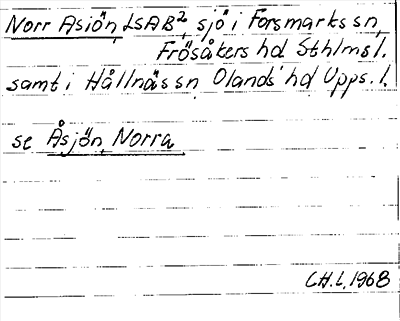 Norr Asiön, LSAB², sjö i Forsmarks sn,
Frösåkers hd Sthlms l.
samt i Hållnäs sn Olands hd Upps. l.
se Åsjön, Norra
CH.L, 1968